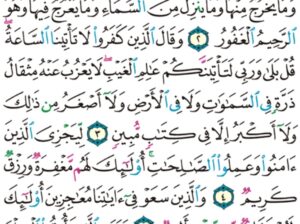 وَمَا يَخْرُجُ مِنْهَا وَمَا يَنزِلُ مِنَ ٱلسَّمَآءِ وَمَا يَعْرُجُ فِيهَا وَهُوَ
ٱلرَّحِيمُ ٱلْغَفُورُ ٢ وَقَالَ ٱلَّذِينَ كَفَرُوا۟ لَا تَأْتِينَا ٱلسَّاعَةُ
قُلْ بَلَىٰ وَرَبِّى لَتَأْتِيَنَّكُمْ عَٰلِمِ ٱلْغَيْبِ لَا يَعْزُبُ عَنْهُ مِثْقَالُ
ذَرَّةٍ فِى ٱلسَّمَٰوَٰتِ وَلَا فِى ٱلْأَرْضِ وَلَآ أَصْغَرُ مِن ذَٰلِكَ
وَلَآ أَكْبَرُ إِلَّا فِى كِتَٰبٍ مُّبِينٍ ٣ لِّيَجْزِىَ ٱلَّذِينَ
ءَامَنُوا۟ وَعَمِلُوا۟ ٱلصَّٰلِحَٰتِ أُو۟لَٰٓئِكَ لَهُم مَّغْفِرَةٌ وَرِزْقٌ
كَرِيمٌ ٤ وَٱلَّذِينَ سَعَوْ فِىٓ ءَايَٰتِنَا مُعَٰجِزِينَ أُو۟لَٰٓئِكَ